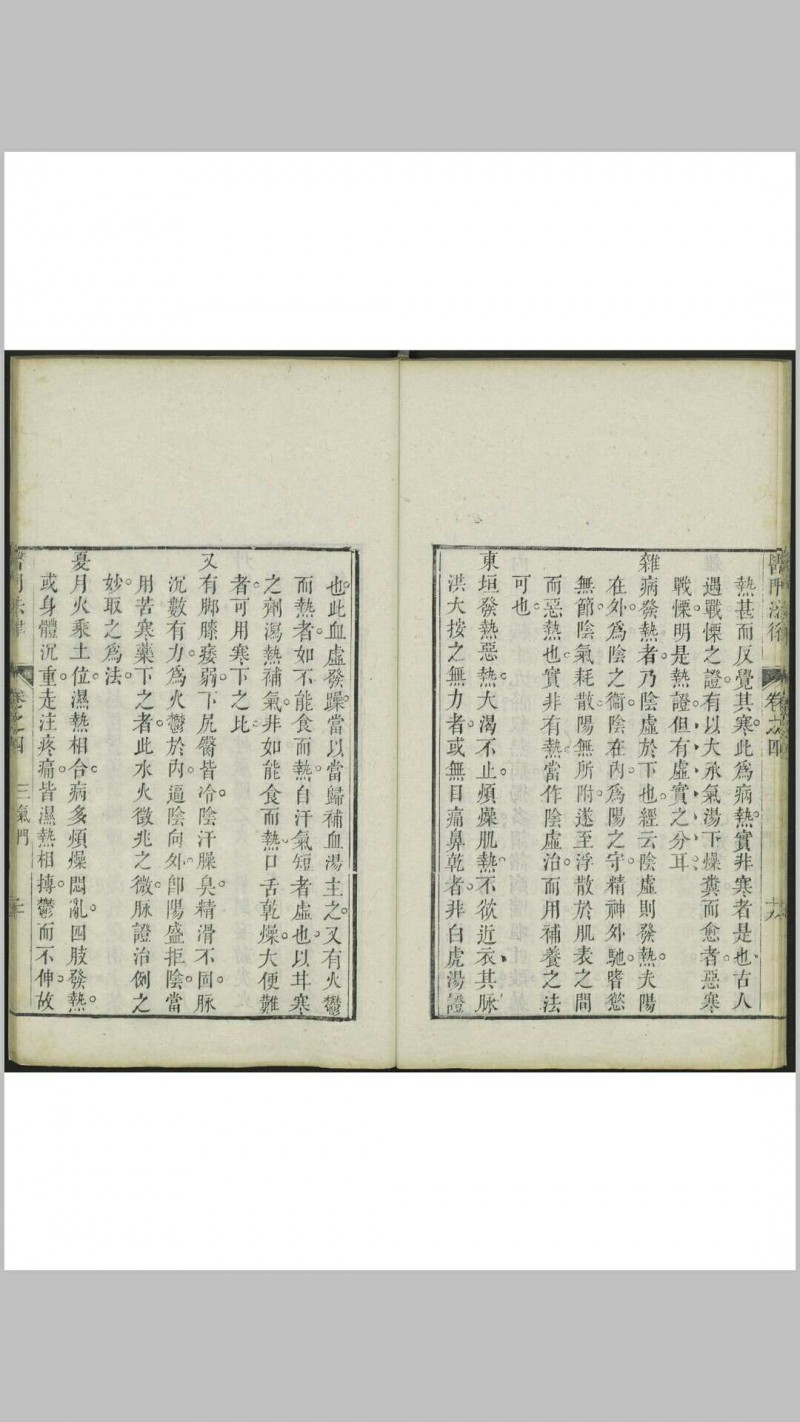 醫門法律 卷之四
熱甚而反覺其寒此爲病熱實非寒者是也古人
遇戰慄之證有以大承氣湯下燥糞而愈者惡寒
戰慄明是熱證但有虛實之分耳
雜病發熱者乃陰虛於下也經云陰虛則發熱夫陽
在外爲陰之衞陰在內爲陽之守精神外馳嗜慾
無節陰氣耗散陽無所附遂至浮散於肌表之間
而惡熱也實非有熱當作陰虛治而用補養之法
可也
東垣發熱惡熱大渴不止煩燥肌熱不欲近衣其脉
洪大按之無力者或無目痛鼻乾者非白虎湯證
也此血虛發躁當以當歸補血湯主之又有火鬱
而熱者如不能食而熱自汗氣短者虛也以甘寒
之劑瀉熱補氣非如能食而熱口舌乾燥大便難
者可用寒下之比
又有脚膝痿弱下尻臀皆冷陰汗臊臭精滑不固脉
沉數有力爲火鬱於內逼陰向外卽陽盛拒陰當
用苦寒藥下之者此水火徵兆之微脉證治例之
妙取之爲法
夏月火乘土位濕熱相合病多煩燥悶亂四肢發熱
或身體沉重走注疼痛皆濕熱相搏鬱而不伸故
醫門法律 卷之四 三氣門